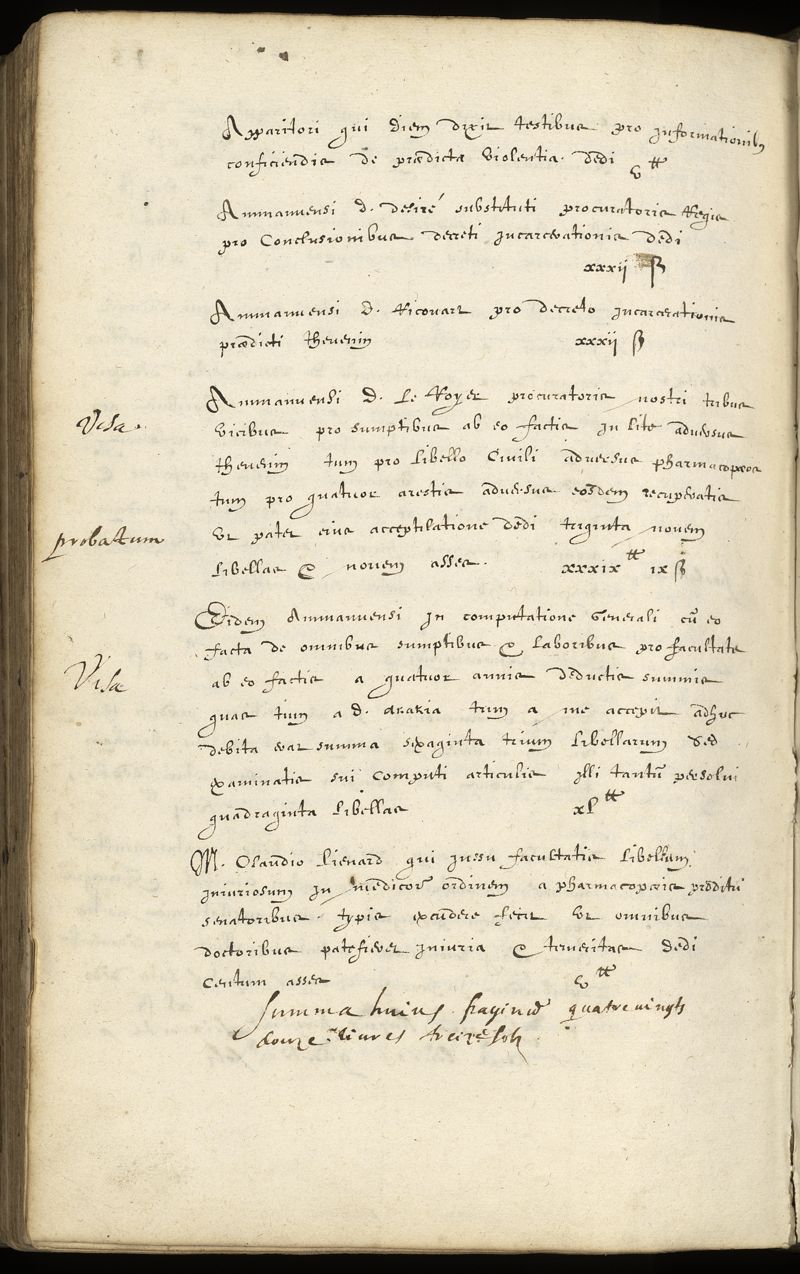 Apparitori qui diem dixit testibus pro informationibus
conficiendis de praedicta violentia. dedi v tt
Ammanuensi d. desiré substituti procuratoris Regis
pro Conclusionibus decreti incarcerationis dedi
xxxii ß
Ammanuensi d. Ricouart pro decreto incarcerationis
praedicti thevenin xxxii ß
Ammanuensi d. Le Royer procuratoris nostri tribus
Visa.
vicibus pro sumptibus ab eo factis in lite adversus
thevenin tum pro libello Civili adversus pharmacopœos
tum pro quatuor arestis adversus eosdem recuperatis
probatum
ut patet eius acceptilatione dedi triginta novem
libellas & novem asses. xxxix tt ix ß
Eidem Ammanuensi in computatione Generali cū eo
facta de omnibus sumptibus & laboribus pro facultate
Visa
ab eo factis a quatuor annis deductis summis
quas tum a d. tum a me accepit adhuc
debita erat summa sexaginta trium libellarum sed
examinatis sui computi articulis illi tantū persolvi
quadraginta libellas xl tt
M. Claudio lienard qui jussu facultatis libellum
iniuriosum in medicorū ordinem a pharmacopœis proditū
senatoribus. typis excudere fecit ut omnibus
doctoribus patefieret iniuria & temeritas dedi
centum asses v tt
summa huius paginæ quatre vingts
douze livres treize solz